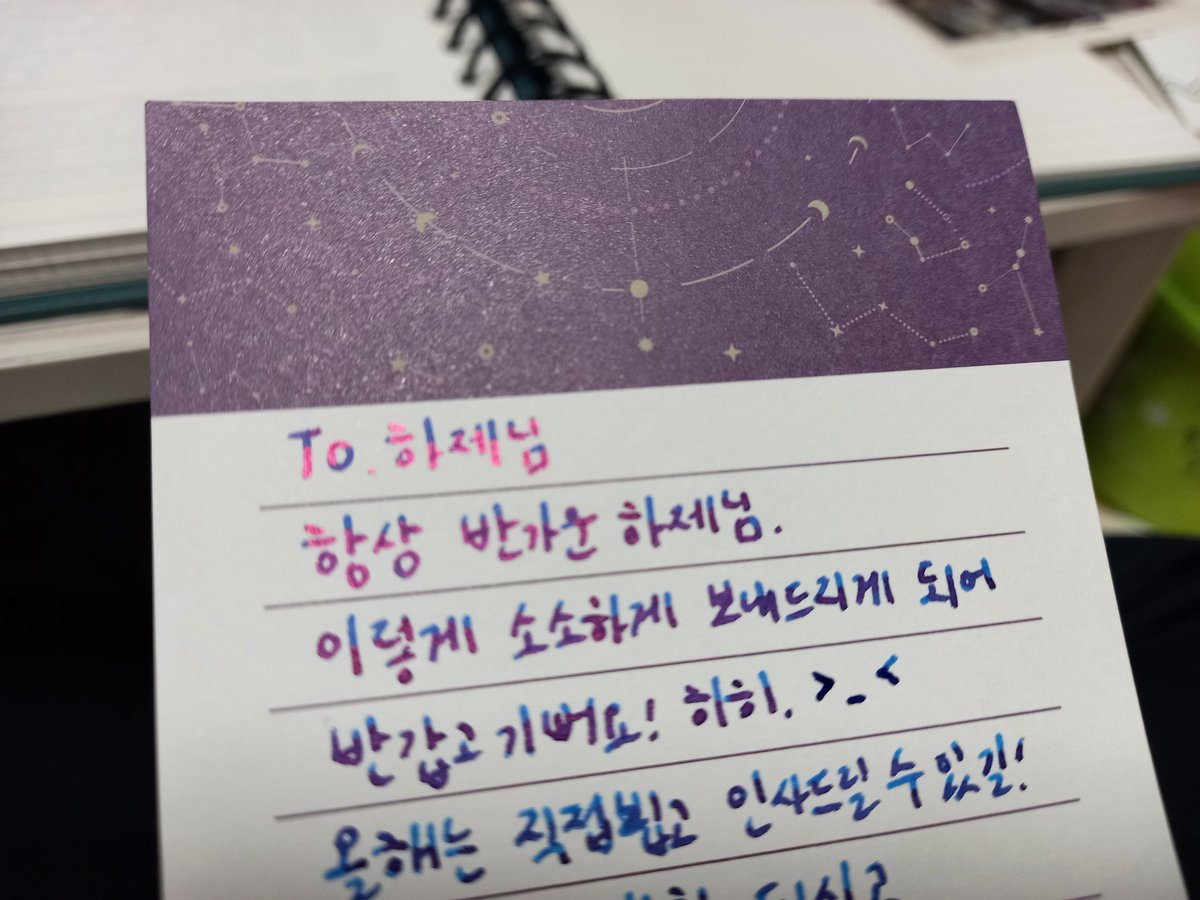 To. 하제님
항상 반가운 하제님.
이렇게 소소하게 보내드리게 되어
반갑고 기뻐요! 히히. >_<
올해는 직접뵙고 인사드릴 수 있길!